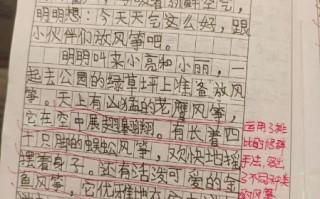 明明想：今天天气这么好，跟
小伙伴们放风筝吧。
明明叫来小亮和小丽，一
起去公园的绿草坪上准备放风
筝。天上有凶猛的花鹰风筝，
它在空中展翅翱翔。有长着四
十只脚的蜈蚣风筝，欢快地摇
摆着身子。还有活泼可爱的金
鱼风筝，它
运用了排
比的修辞
手法，
了不同种类
的风筝